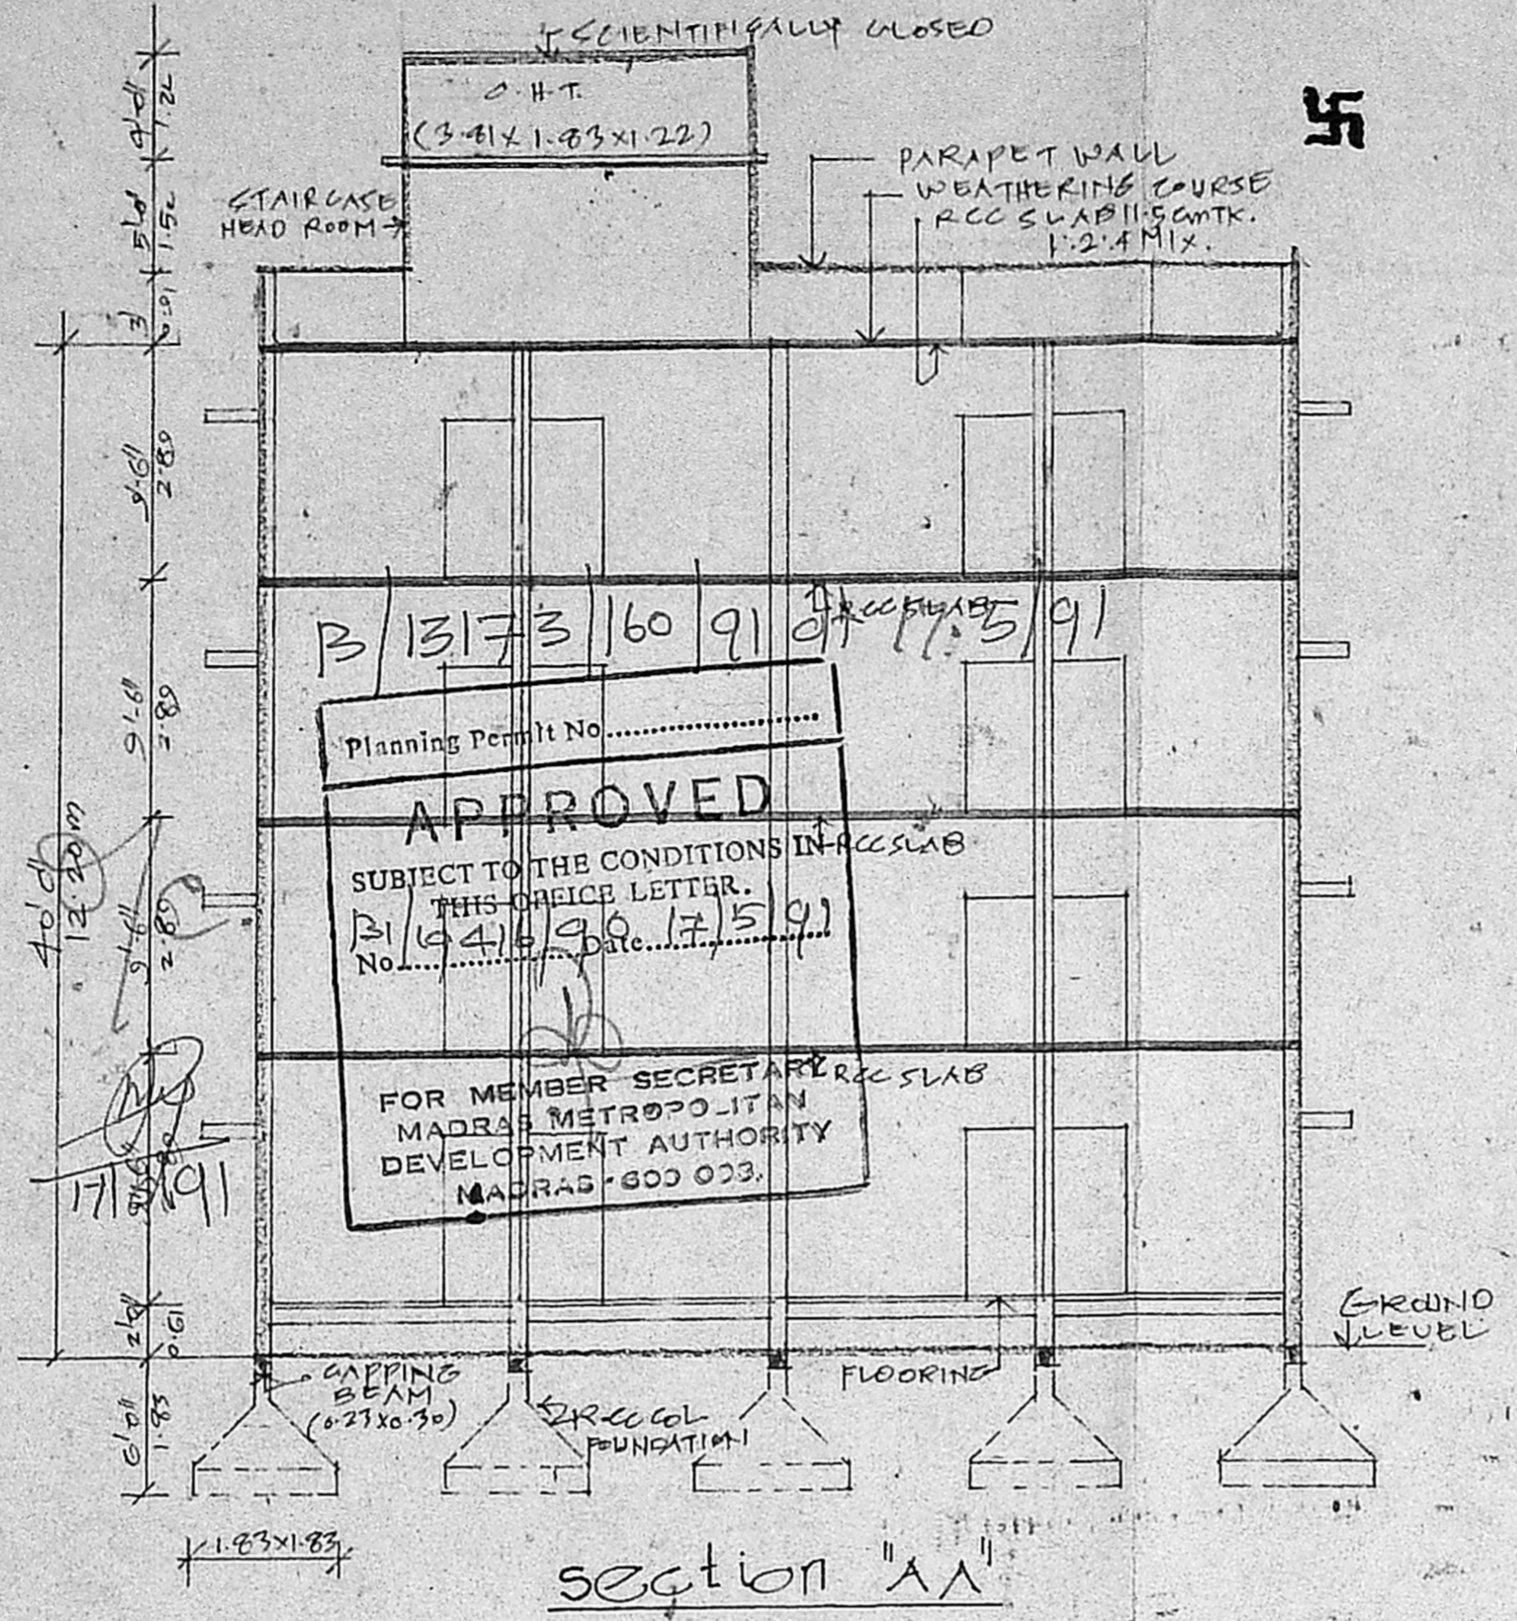 SCIENTIFICALLY CLOSED
O.H.T.
(3.81X1.83X1.22)
PARAPET WALL
WEATHERING COURSE
RCC SLAB 11.5 CmTK.
1:2:4 MIX.
STAIRCASE
HEAD ROOM
4'-0"
1.22
5'-0"
1.52
3'
0.91
9'-6"
2.89
9'-6"
2.89
9'-6"
2.89
40'0"
12.20m
2'0"
0.61
6'0"
1.83
B/13173/160/91 dt 17.5/91
RCC SLAB
Planning Permit No
APPROVED
SUBJECT TO THE CONDITIONS IN
THIS OFFICE LETTER.
No. Date 17/5/91
RCC SLAB
FOR MEMBER SECRETARY
MADRAS METROPOLITAN
DEVELOPMENT AUTHORITY
MADRAS-600 003.
RCC SLAB
GROUND
LEVEL
CAPPING
BEAM
(0.23X0.30)
RCC COL
FOUNDATION
FLOORING
1.83X1.83
section "AA"